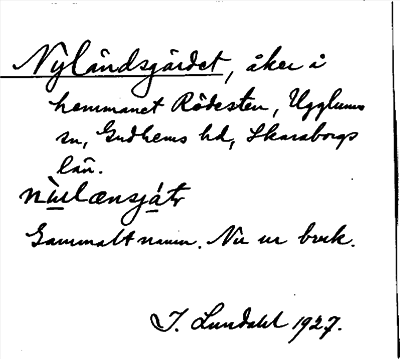 Nyländsgärdet, åker å
hemmanet Rödesten, Ugglums
sn, Gudhems hd, Skaraborgs
län.
Gammalt namn. Nu ur bruk.
J. Lundahl 1927.